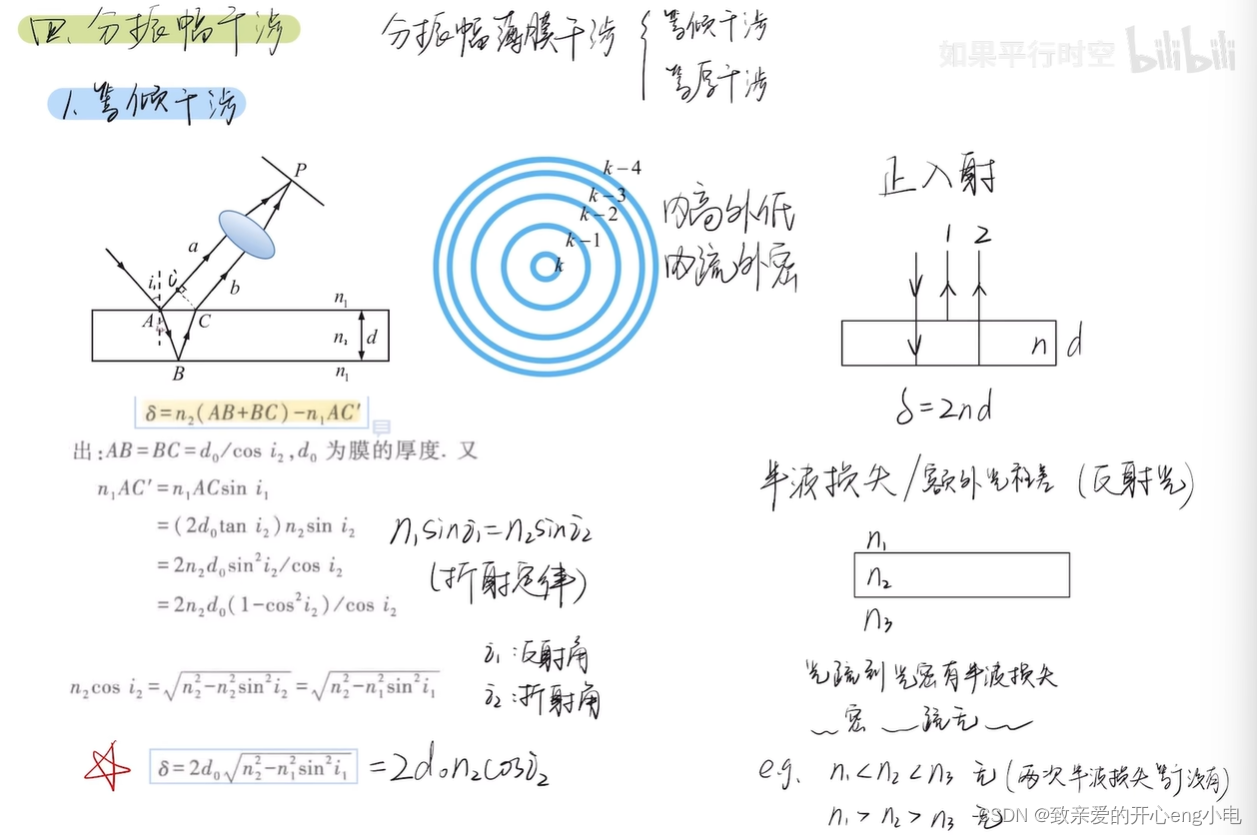 四.分振幅干涉
分振幅薄膜干涉
等倾干涉
等厚干涉
如果平行时空 bilibili
1.等倾干涉
P
a
b
i₁
C'
A
C
B
n₁
n₁
n₁
d
k-4
k-3
k-2
k-1
k
内高外低
内疏外密
正入射
1 2
n d
δ=2nd
δ=n₂(AB+BC)-n₁AC'
出:AB=BC=d₀/cos i₂,d₀ 为膜的厚度. 又
n₁AC'=n₁ACsin i₁
=(2d₀tan i₂)n₂sin i₂
=2n₂d₀sin²i₂/cos i₂
=2n₂d₀(1-cos²i₂)/cos i₂
n₁sini₁=n₂sini₂
(折射定律)
i₁:反射角
i₂:折射角
n₂cos i₂=√(n₂²-n₂²sin²i₂)=√(n₂²-n₁²sin²i₁)
δ=2d₀√(n₂²-n₁²sin²i₁) =2d₀n₂cosi₂
半波损失/额外光程差(反射光)
n₁
n₂
n₃
光疏到光密有半波损失
~密~疏无~
e.g. n₁<n₂<n₃ 无(两次半波损失等于没有)
n₁>n₂>n₃ 无
CSDN @致亲爱的开心eng小电